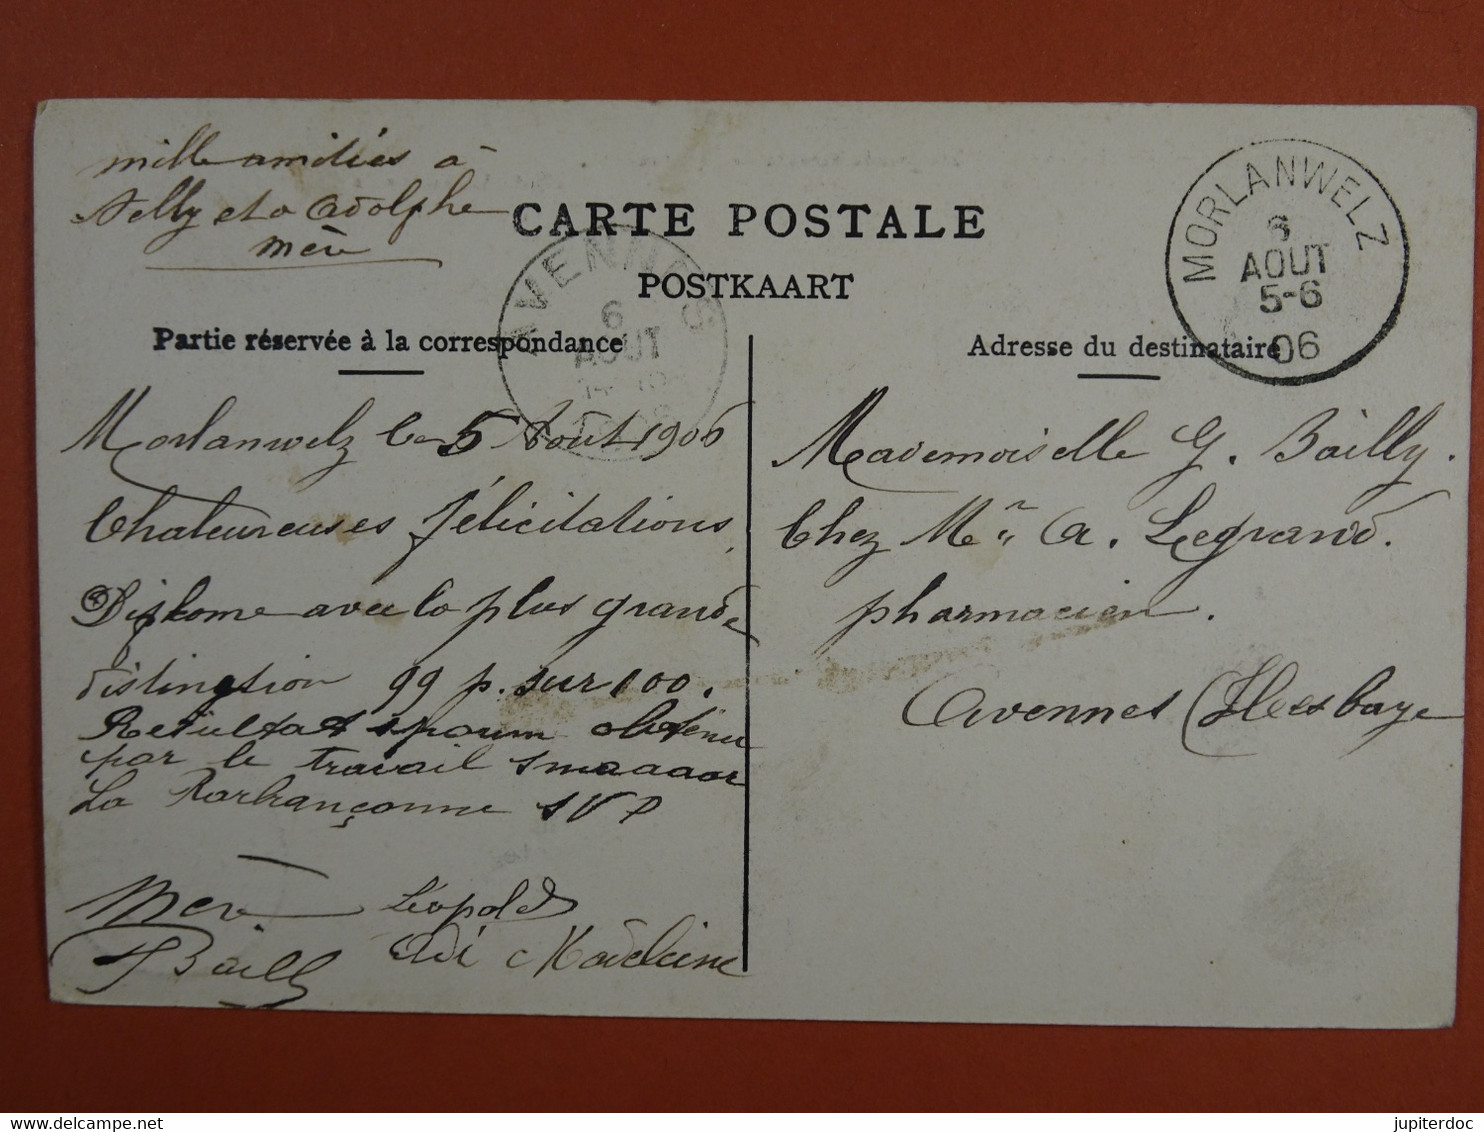 mille amitiés à
Nelly et à Adolphe
mère
CARTE POSTALE
POSTKAART
MORLANWELZ
6
AOUT
5-6
06
AVENNES
6
AOUT
Partie réservée à la correspondance
Adresse du destinataire
Morlanwelz le 5 Août 1906
Chaleureuses félicitations,
Diplome avec la plus grande
distinction 99 p. sur 100.
Resultat obtenu
par le travail
La SVP
Mère Léopold
Bailly Adi Madeleine
Mademoiselle G. Bailly.
Chez Mr A. Legrand.
pharmacien.
Avennes (Hesbaye
jupiterdoc